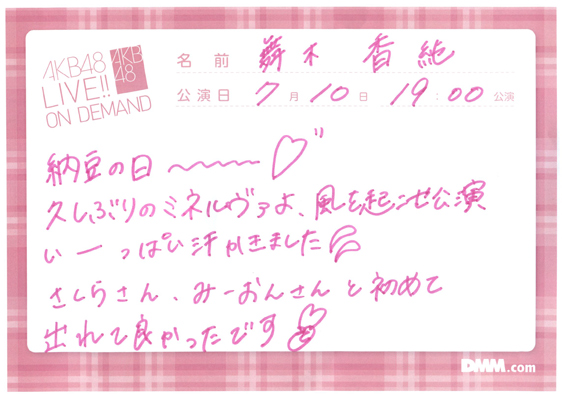 AKB48
LIVE!!
ON DEMAND
AKB
48
名前 舞木 香純
公演日 7月10日 19:00公演
納豆の日〜〜〜♡"
久しぶりのミネルヴァよ、風を起こせ公演
いーっぱい汗かきました
さくらさん、みーおんさんと初めて
出れて良かったです
DMM.com